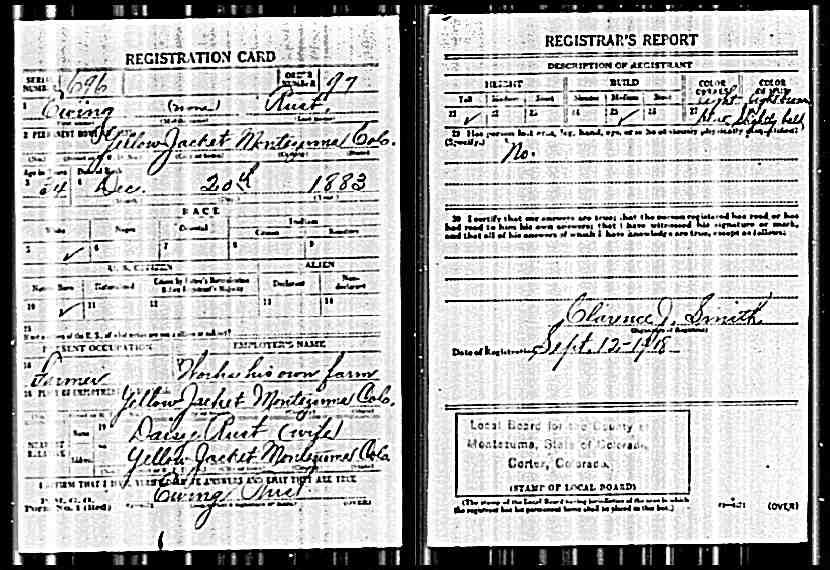 REGISTRATION CARD
SERIAL NUMBER 696 ORDER NUMBER 97
1 Ewing (None) Rust
2 PERMANENT HOME Yellow Jacket Montezuma Colo.
Age in Years Date of Birth
3 34 4 Dec. 20th 1883
RACE
White Negro Oriental Indian
Citizen
5 ✓ 6 7 8 9
U. S. CITIZEN ALIEN
Native Born Naturalized Declarant Non-declarant
10 ✓ 11 12 13 14
15
PRESENT OCCUPATION EMPLOYER'S NAME
16 Farmer Works his own farm
18 PLACE OF EMPLOYMENT Yellow Jacket Montezuma Colo.
NEAREST RELATIVE Name 19 Daisy Rust (wife)
Address 20 Yellow Jacket Montezuma Colo
I AFFIRM THAT I HAVE VERIFIED ABOVE ANSWERS AND THAT THEY ARE TRUE
Ewing Rust
P. M. G. O.
Form No. 1 (Red) (OVER)
REGISTRAR'S REPORT
DESCRIPTION OF REGISTRANT
HEIGHT BUILD COLOR OF EYES COLOR OF HAIR
Tall Medium Short Slender Medium Stout
21 ✓ 22 23 24 25 ✓ 26 27 Light Blue light brown slightly bald
29 Has person lost arm, leg, hand, eye, or is he obviously physically disqualified?
(Specify.) No.
30 I certify that my answers are true; that the person registered has read or has
had read to him his own answers; that I have witnessed his signature or mark,
and that all of his answers of which I have knowledge are true, except as follows:
Clarence J. Smith
(Signature of Registrar)
Date of Registration Sept. 12-1918
Local Board for the County of
Montezuma, State of Colorado,
Cortez, Colorado.
(STAMP OF LOCAL BOARD)
(The stamp of the Local Board having jurisdiction of the area in which
the registrant has his permanent home shall be placed in this box.)
(OVER)